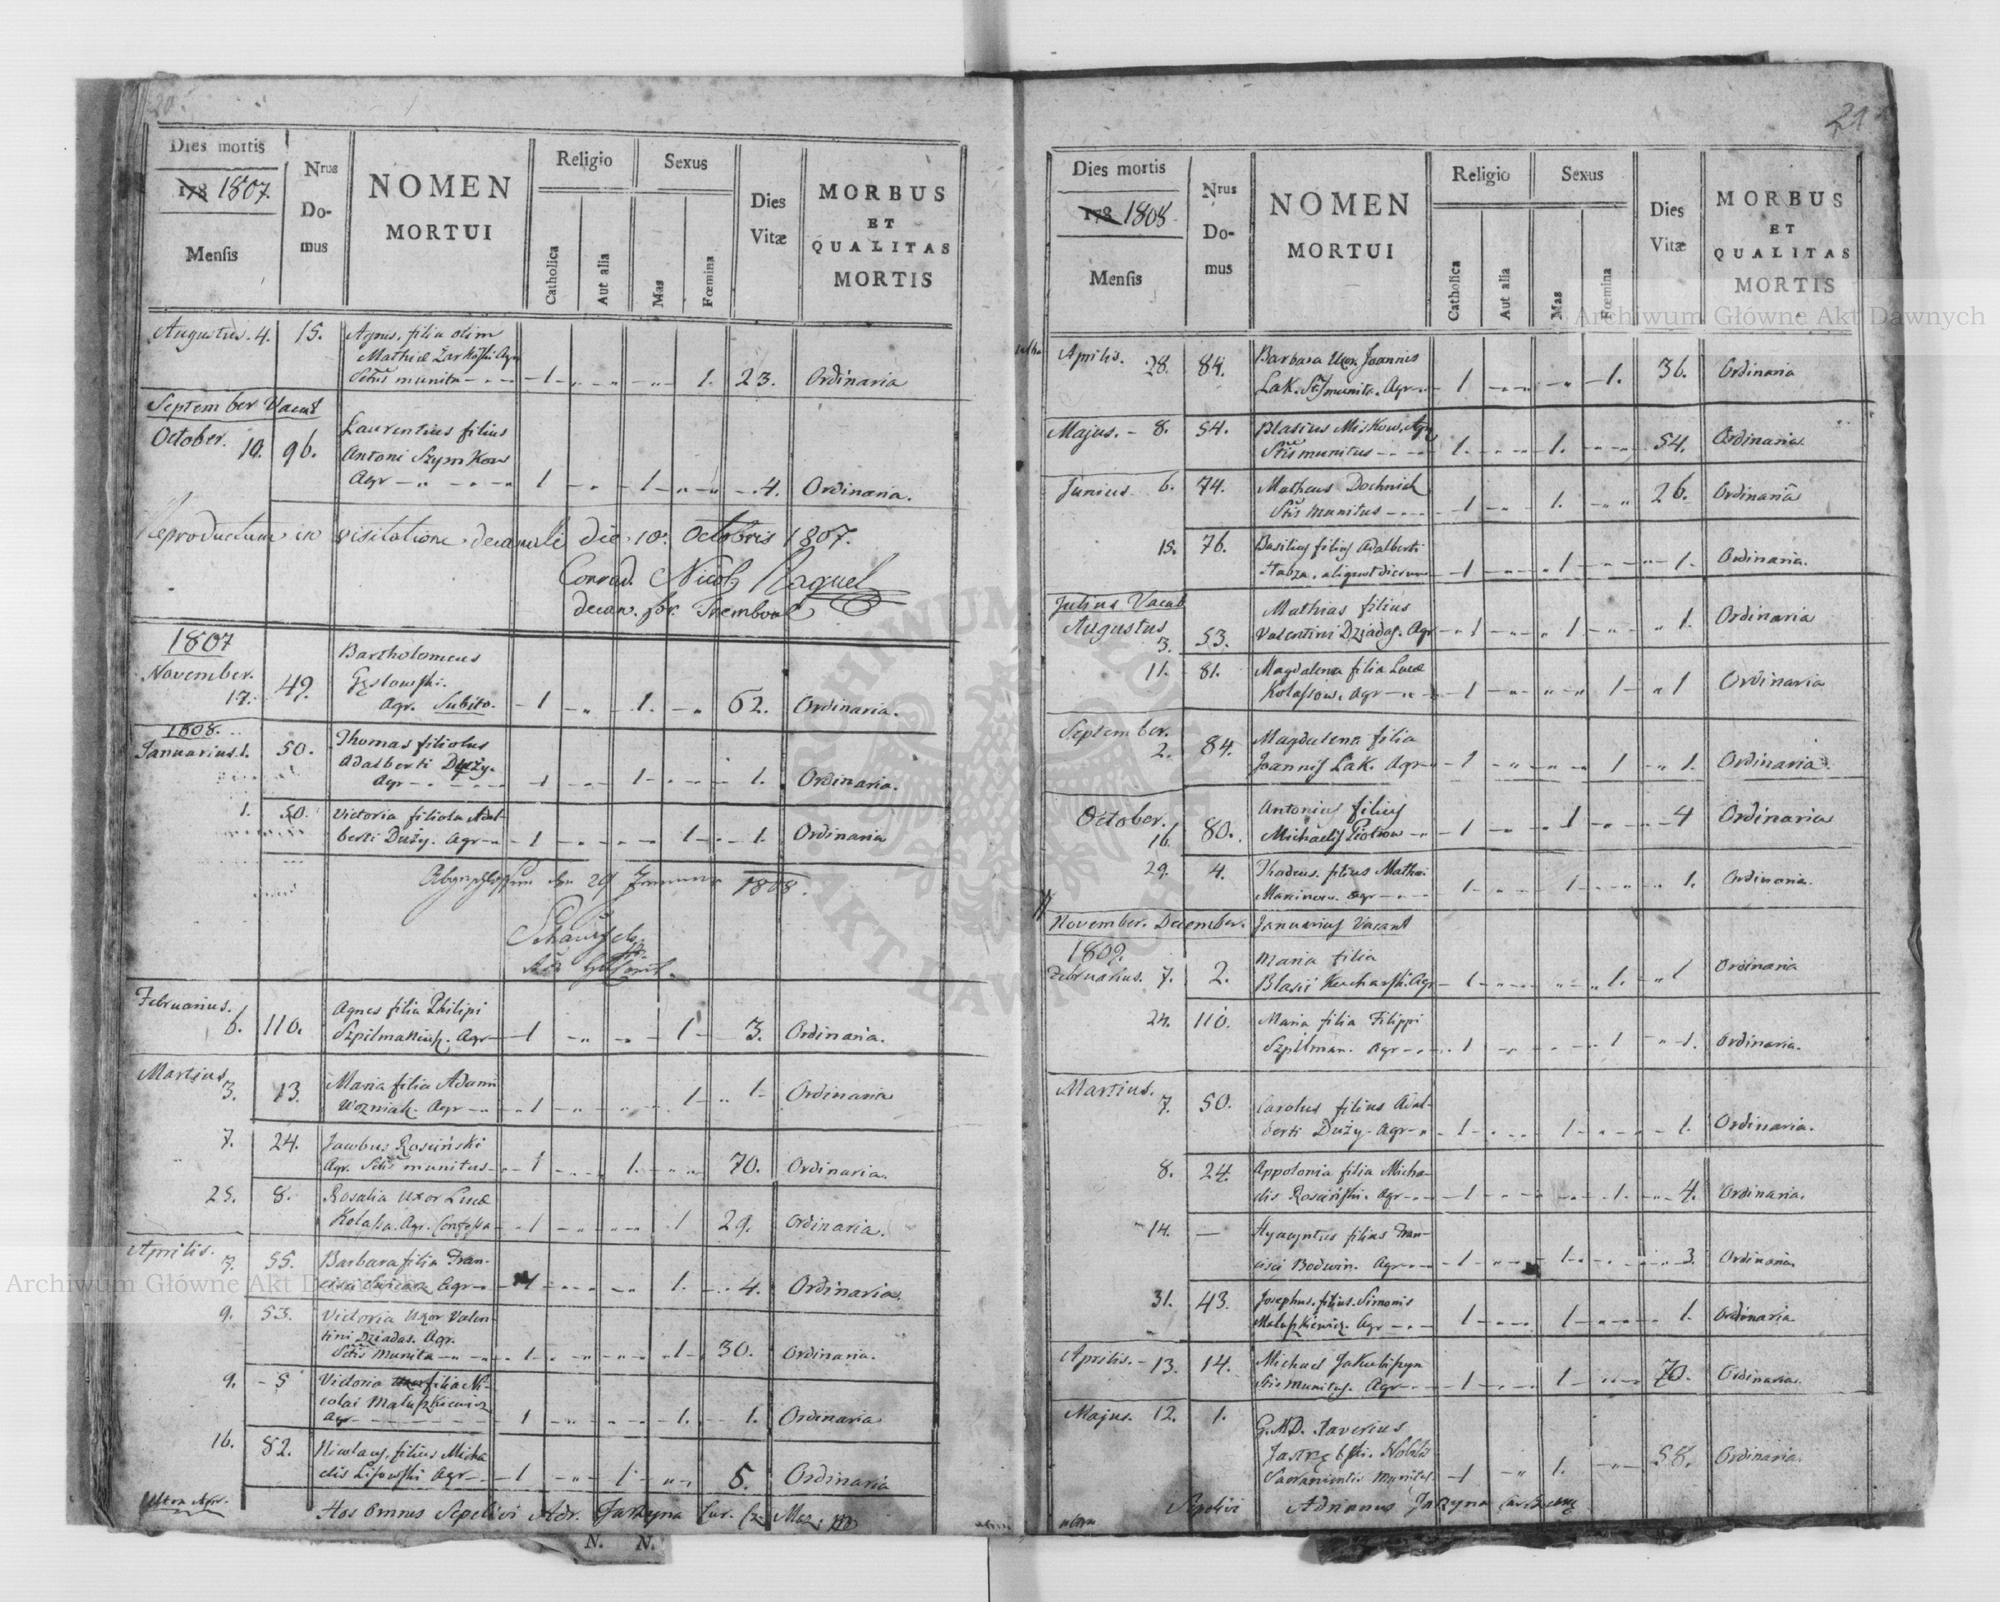 20.
Dies mortis
178 1807.
Mensis
Nrus
Do-
mus
NOMEN
MORTUI
Religio
Catholica
Aut alia
Sexus
Mas
Fœmina
Dies
Vitæ
MORBUS
ET
QUALITAS
MORTIS
Augustus. 4. 15. Agnes, filia olim
Mathiæ Agr
munita 1 1. 23. Ordinaria
September Vacat
October. 10. 96. Laurentius filius
Antoni Szymkow
Agr 1 1 4. Ordinaria.
Reproductum in visitatione decanali die 10. Octobris 1807.
Conrad.
decan. for. Trembowl
1807
November.
17. 49. Bartholomeus
Gęslowski.
Agr. Subito. 1 1. 62. Ordinaria.
1808.
Januarius 1. 50. Thomas filiolus
Adalberti Duży.
Agr 1 1 1. Ordinaria.
1. 50. Victoria filiola Adal-
berti Duży. Agr 1 1 1. Ordinaria
29 1808.
Februarius.
6. 110. Agnes filia Philipi
Agr 1 1 3. Ordinaria.
Martius.
3. 13. Maria filia Adami
Wozniak. Agr 1 1 1 Ordinaria
7. 24. Jacobus Rosciński
Agr. Sctis munitus 1 1. 70. Ordinaria.
25. 8. Rosalia uxor Lucæ
Kolassa. Agr. Confessa 1 1 29. Ordinaria.
Aprilis.
7. 55. Barbara filia Fran-
cisci Agr 1 1. 4. Ordinaria.
9. 53. Victoria Uxor Valen-
tini Dziadas. Agr.
Sctis munita 1 1 30. Ordinaria.
9. 5 Victoria filia Ni-
colai Maluszkiewicz
Agr 1 1. 1. Ordinaria
16. 82. Nicolaus, filius Micha
elis Lisowski Agr 1 1 5. Ordinaria
Hos omnes Sepelivi Adr. Jarzyna Cur.
N. N.
21
Dies mortis
178 1808.
Mensis
Nrus
Do-
mus
NOMEN
MORTUI
Religio
Catholica
Aut alia
Sexus
Mas
Fœmina
Dies
Vitæ
MORBUS
ET
QUALITAS
MORTIS
Aprilis. 28. 84. Barbara Uxor Joannis
Lak. munita. Agr 1 1. 36. Ordinaria
Majus. 8. 54. Blasius Miskow. Agr
Sctis munitus 1. 1. 54. Ordinaria.
Junius 6. 74. Matheus Dochnick
Sctis munitus 1 1. 26. Ordinaria
15. 76. Basilius filius Adalberti
aliquot dierum 1 1 1. Ordinaria.
Julius Vacat
Augustus
3. 53. Mathias filius
Valentini Dziadas. Agr 1 1 1. Ordinaria
11. 81. Magdalena filia Lucæ
Kolassow. Agr 1 1 1 Ordinaria
September.
2. 84. Magdalena filia
Joannis Lak. Agr 1 1 1. Ordinaria.
October.
16. 80. Antonius filius
Michaelis Piotrow 1 1 4 Ordinaria
29. 4. Thadeus. filius Mathei
Marcinow. Agr 1 1 1. Ordinaria.
November. December. Januarius Vacant
1809.
Februarius. 7. 2. Maria filia
Blasii Agr 1 1. 1 Ordinaria
24. 110. Maria filia Filippi
Szpilman. Agr 1 1 1. Ordinaria.
Martius.
7. 50. Carolus filius Adal-
berti Duży. Agr 1 1 1. Ordinaria.
8. 24. Appolonia filia Micha-
elis Rosciński. Agr 1 1. 4. Ordinaria.
14. — Hyacyntus filius Fran-
cisci Bodwin. Agr 1 1 3. Ordinaria.
31. 43. Josephus. filius. Simonis
Maluszkiewicz. Agr 1 1 1. Ordinaria
Aprilis. 13. 14. Michael
Sctis munitus. Agr 1 1 70. Ordinaria.
Majus. 12. 1. G. M. D. Xaverius
Jastrzębski. Nobilis
Sacramentis munitus. 1 1. 58. Ordinaria.
Sepelivi Adrianus Jarzyna
Archiwum Główne Akt Dawnych
Archiwum Główne Akt Dawnych
ARCHIWUM GŁÓWNE AKT DAWNYCH